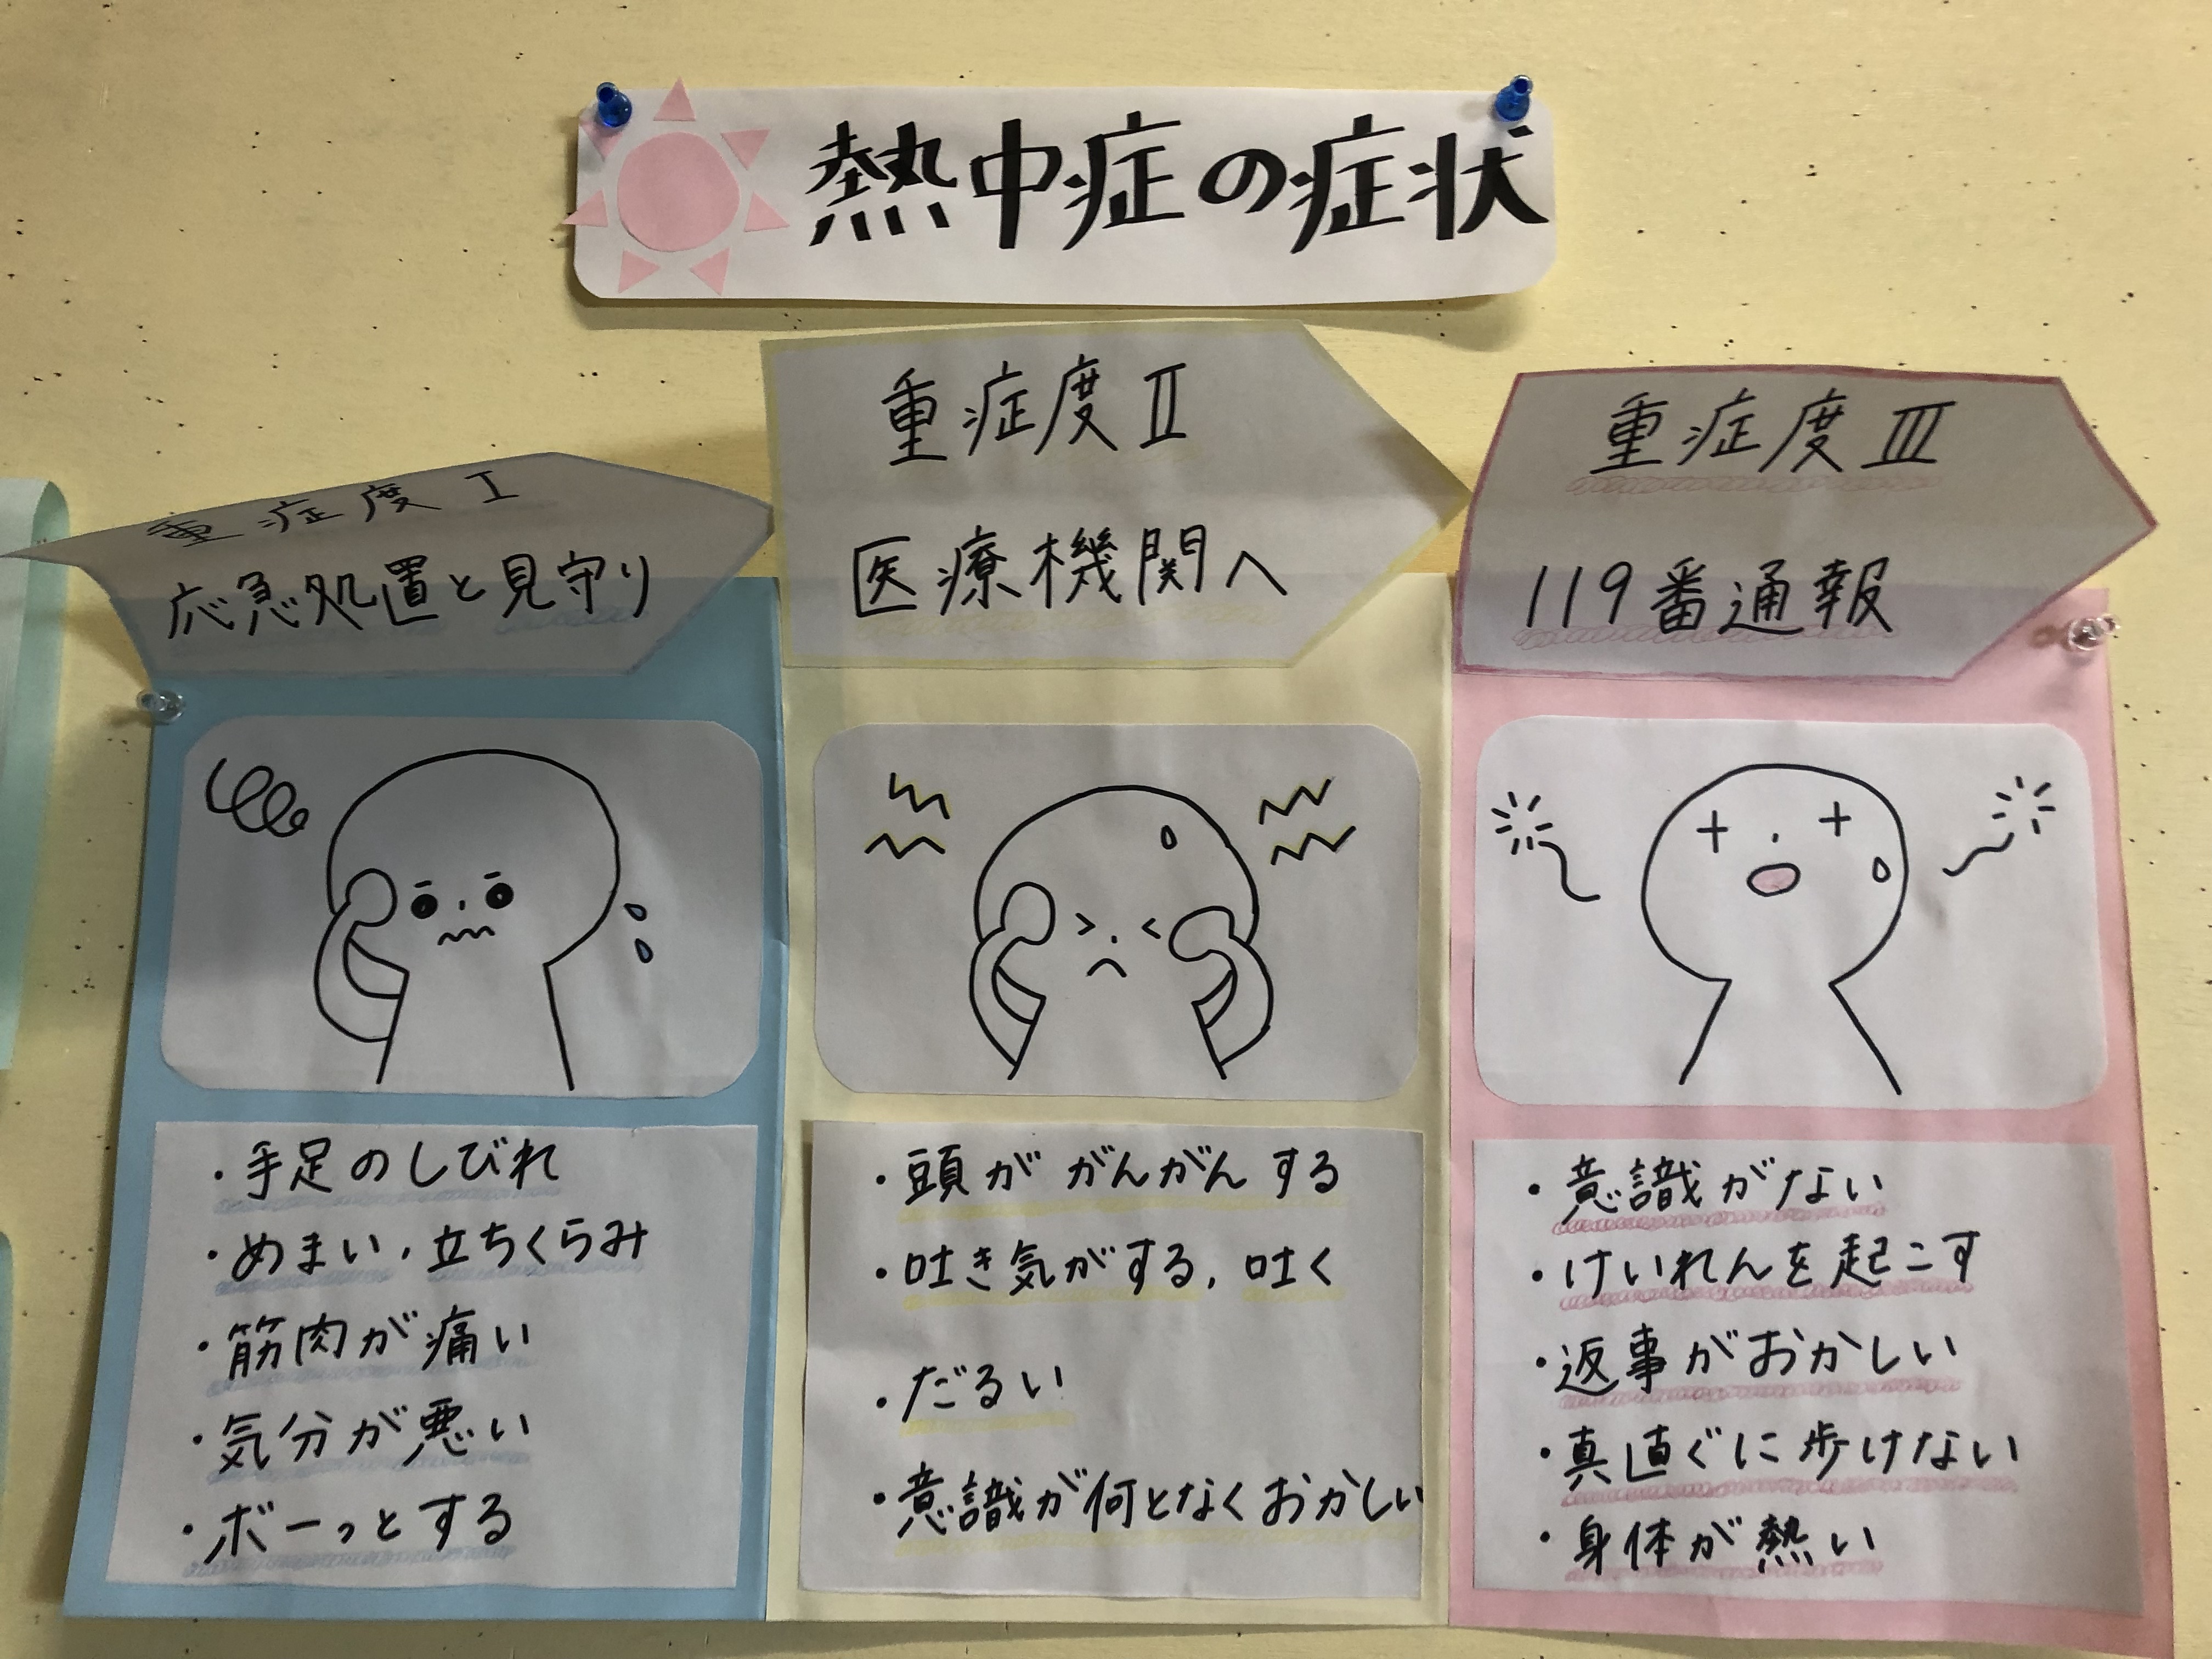 熱中症の症状
重症度Ⅰ
応急処置と見守り
・手足のしびれ
・めまい,立ちくらみ
・筋肉が痛い
・気分が悪い
・ボーっとする
重症度Ⅱ
医療機関へ
・頭ががんがんする
・吐き気がする,吐く
・だるい
・意識が何となくおかしい
重症度Ⅲ
119番通報
・意識がない
・けいれんを起こす
・返事がおかしい
・真直ぐに歩けない
・身体が熱い